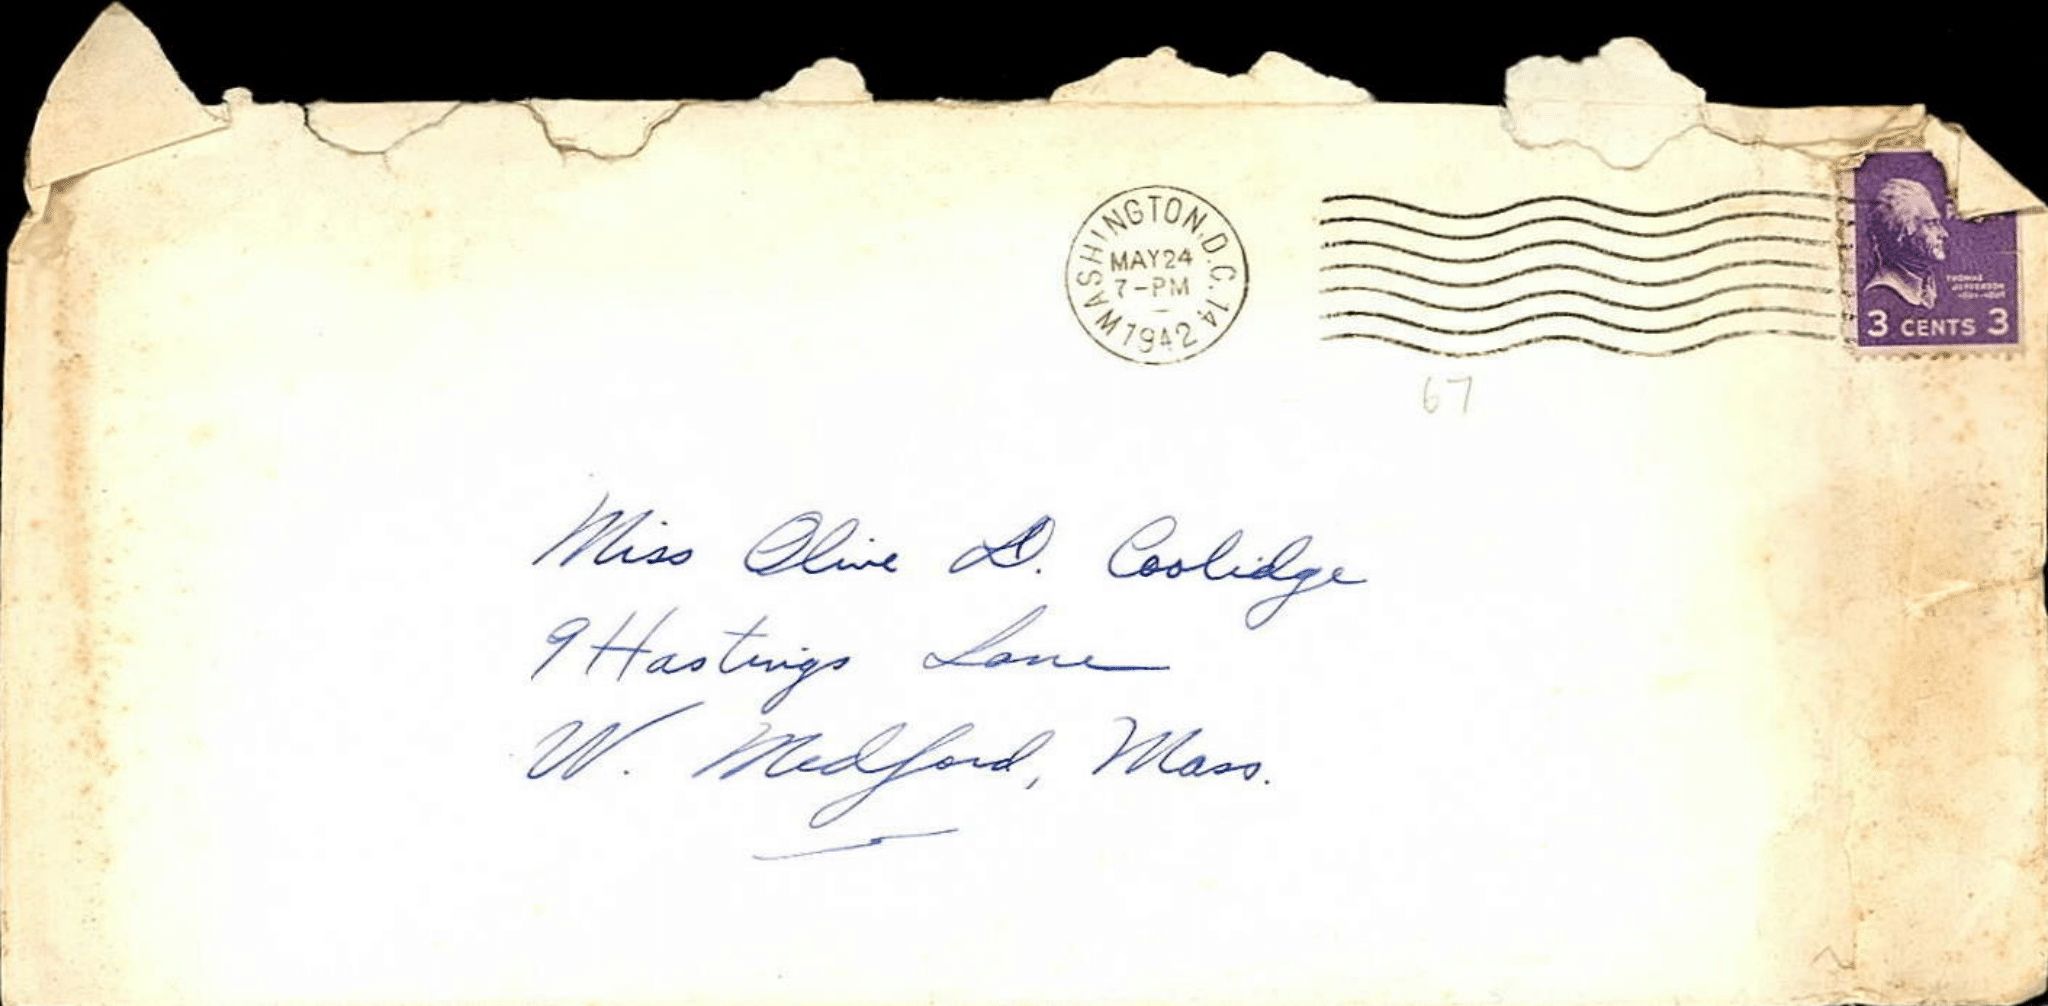 WASHINGTON, D.C. 14
MAY 24
7-PM
1942
THOMAS
JEFFERSON
3 CENTS 3
67
Miss Olive D. Coolidge
9 Hastings Lane
W. Medford, Mass.